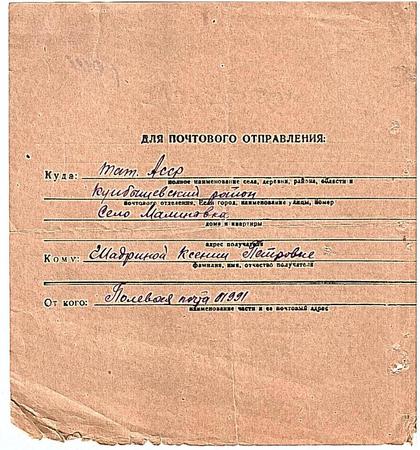 ДЛЯ ПОЧТОВОГО ОТПРАВЛЕНИЯ:
Куда: Тат. Асср
полное наименование села, деревни, района, области и
Куйбышевский район
почтового отделения. Если город, наименование улицы, номер
Село Малиновка
дома и квартиры
адрес получателя
Кому: Шадриной Ксении Петровне
фамилия, имя, отчество получателя
От кого: Полевая почта 01991
наименование части и ее почтовый адрес